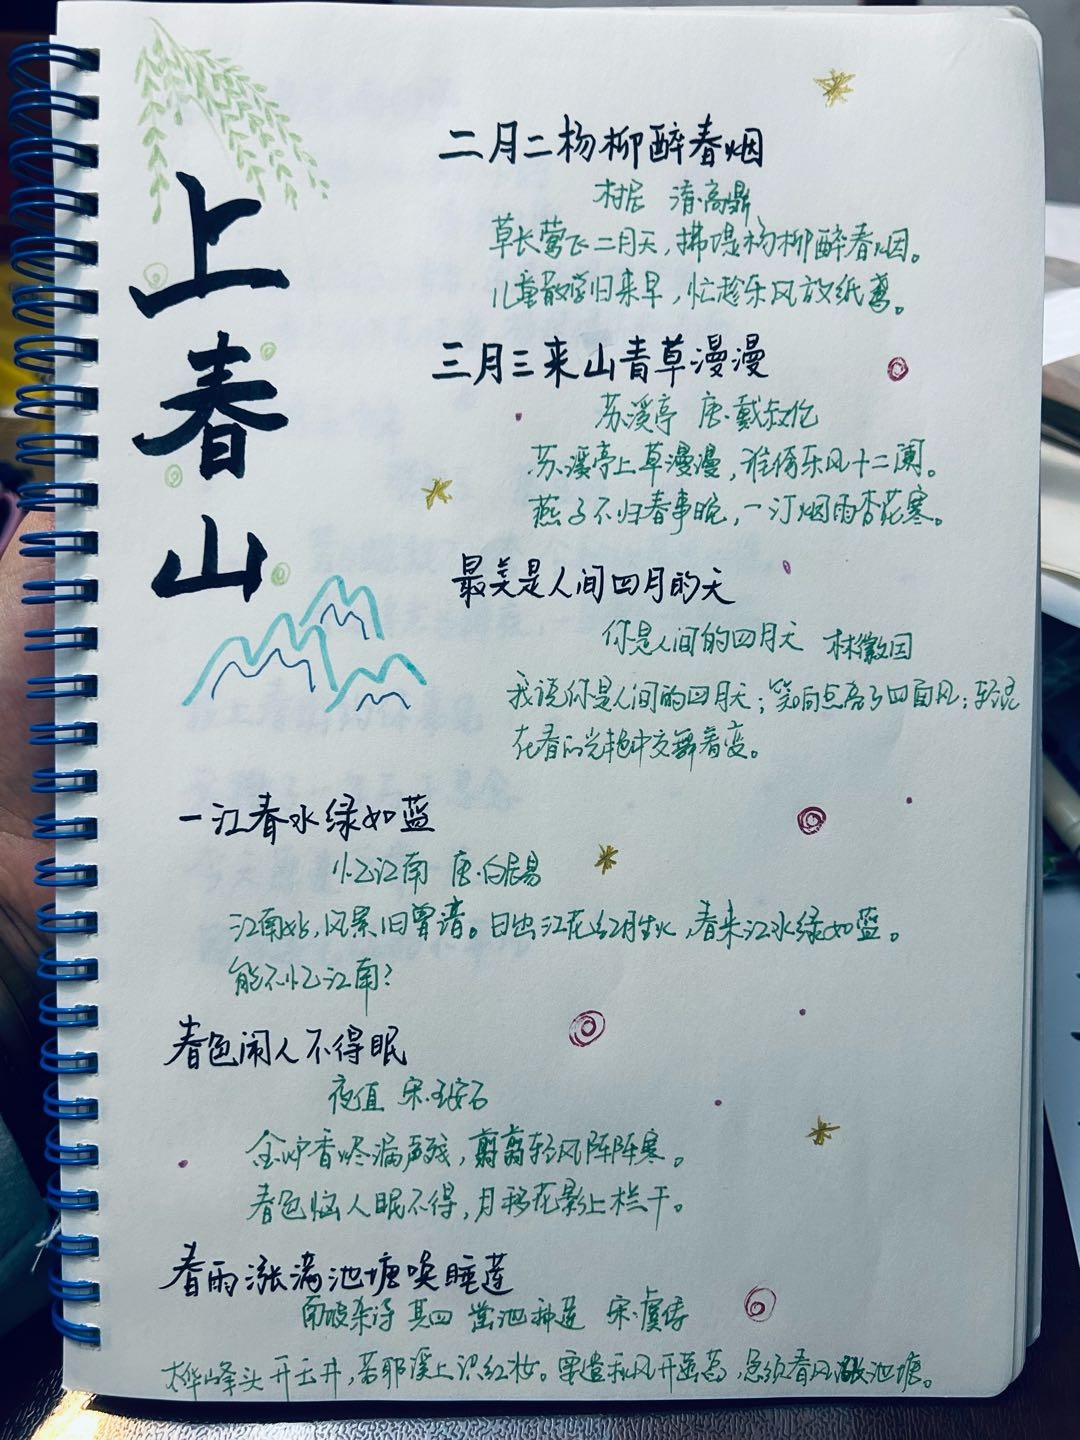 上春山
二月二杨柳醉春烟
村居 清·高鼎
草长莺飞二月天，拂堤杨柳醉春烟。
儿童散学归来早，忙趁东风放纸鸢。
三月三来山青草漫漫
苏溪亭 唐·戴叔伦
苏溪亭上草漫漫，谁倚东风十二阑。
燕子不归春事晚，一汀烟雨杏花寒。
最美是人间四月的天
你是人间的四月天 林徽因
我说你是人间的四月天；笑响点亮了四面风；轻灵
在春的光艳中交舞着变。
一江春水绿如蓝
忆江南 唐·白居易
江南好，风景旧曾谙。日出江花红胜火，春来江水绿如蓝。
能不忆江南？
春色闹人不得眠
夜值 宋·王安石
金炉香烬漏声残，翦翦轻风阵阵寒。
春色恼人眠不得，月移花影上栏干。
春雨涨满池塘唤睡莲
南坡杂诗 其四 凿池种莲 宋·虞俦
峰头开玉井，若耶溪上识红妆。要遣秋风开菡萏，急须春风涨池塘。